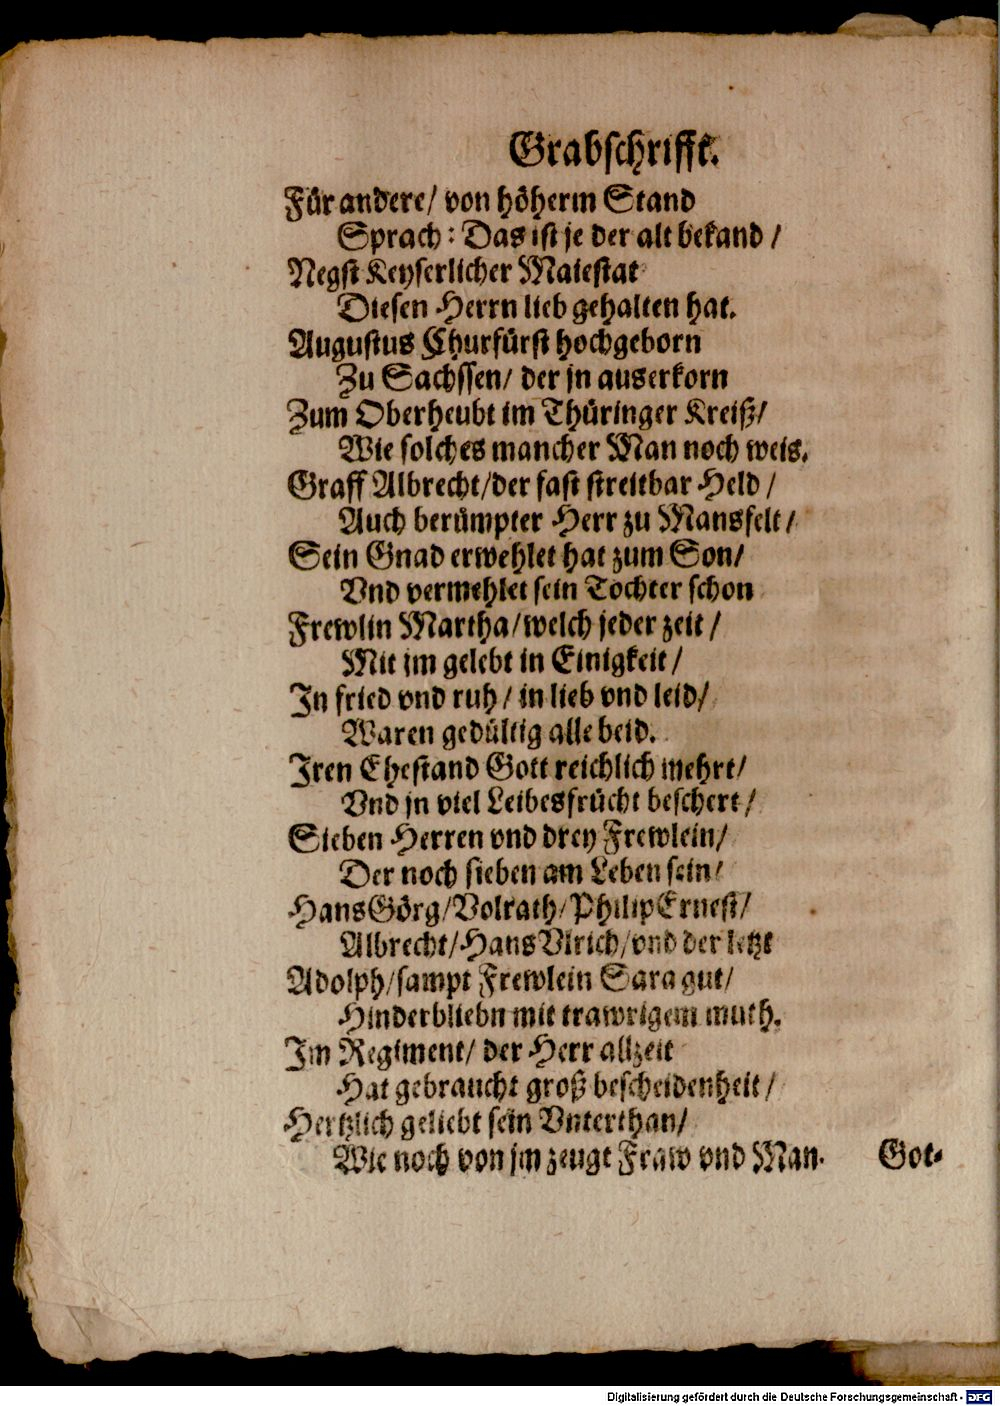 Grabschrifft.
Für andere/ von höherm Stand
Sprach: Das ist je der alt bekand /
Negst Keyserlicher Maiestat
Diesen Herrn lieb gehalten hat.
Augustus Churfürst hochgeborn
Zu Sachssen/ der jn auserkorn
Zum Oberheubt im Thüringer Kreiß/
Wie solches mancher Man noch weis.
Graff Albrecht/der fast streitbar Held /
Auch berümpter Herr zu Mansfelt /
Sein Gnad erwehlet hat zum Son/
Vnd vermehlet sein Tochter schon
Frewlin Martha/welch jeder zeit /
Mit jm gelebt in Einigkeit /
In fried vnd ruh / in lieb vnd leid/
Waren gedültig alle beid.
Iren Ehestand Gott reichlich mehrt/
Vnd jn viel Leibesfrücht beschert /
Sieben Herren vnd drey Frewlein/
Der noch sieben am Leben sein/
Hans Görg/Volrath/Philip Ernest/
Albrecht/Hans Vlrich/vnd der letzt
Adolph/sampt Frewlein Sara gut/
Hinderbliebn mit trawrigem muth.
Im Regiment/ der Herr allzeit
Hat gebraucht groß bescheidenheit /
Hertzlich geliebt sein Vnterthan/
Wie noch von jm zeugt Fraw vnd Man. Got-
Digitalisierung gefördert durch die Deutsche Forschungsgemeinschaft - DFG